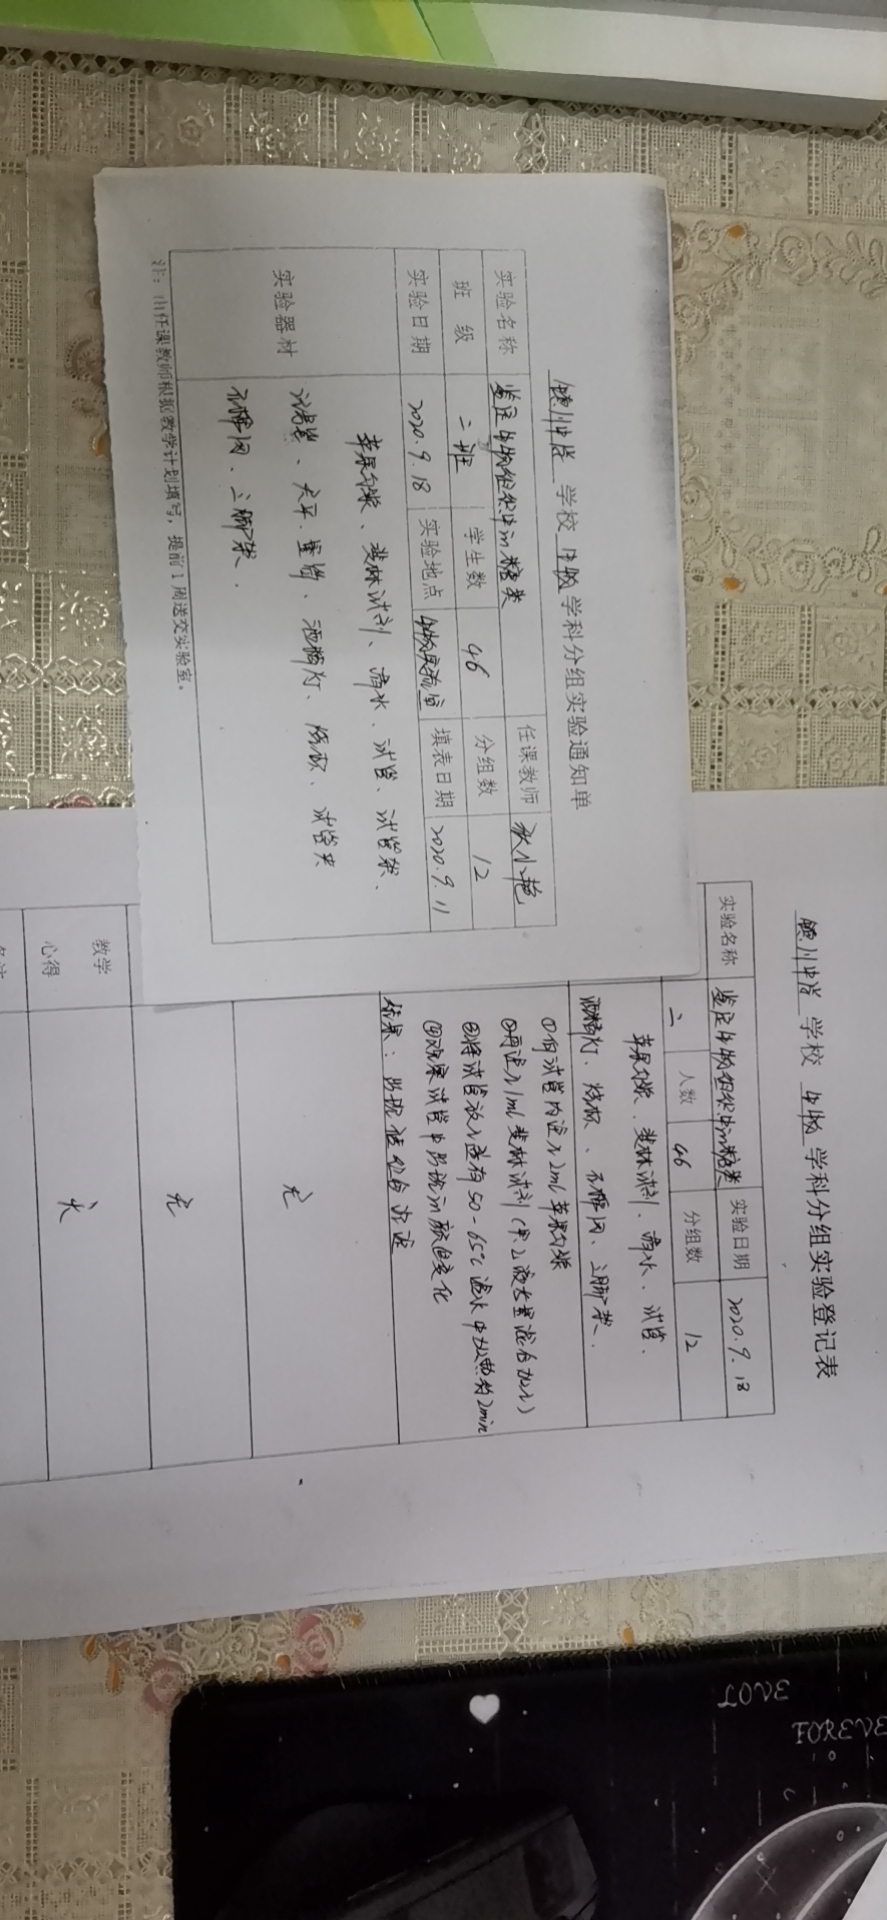 学校 生物 学科分组实验通知单
实验名称 鉴定生物组织中的糖类 任课教师
班 级 二班 学生数 46 分组数 12
实验日期 2020.9.18 实验地点 生物实验室 填表日期 2020.9.11
实验器材
苹果匀浆、斐林试剂、清水、试管、试管架、
天平、量筒、酒精灯、烧杯、试管夹
石棉网、三脚架、
注：由任课教师根据教学计划填写，提前1周送交实验室。
学校 生物 学科分组实验登记表
实验名称 鉴定生物组织中的糖类 实验日期 2020.9.18
二 人数 46 分组数 12
苹果匀浆、斐林试剂、清水、试管、
酒精灯、烧杯、石棉网、三脚架、
①向试管内注入2ml苹果匀浆
②再注入1ml斐林试剂(甲乙液等量混合加入)
③将试管放入盛有50-65℃温水中加热约2min
④观察试管中出现的颜色变化
结果：出现砖红色沉淀
无
无
教学
心得
无
LOVE